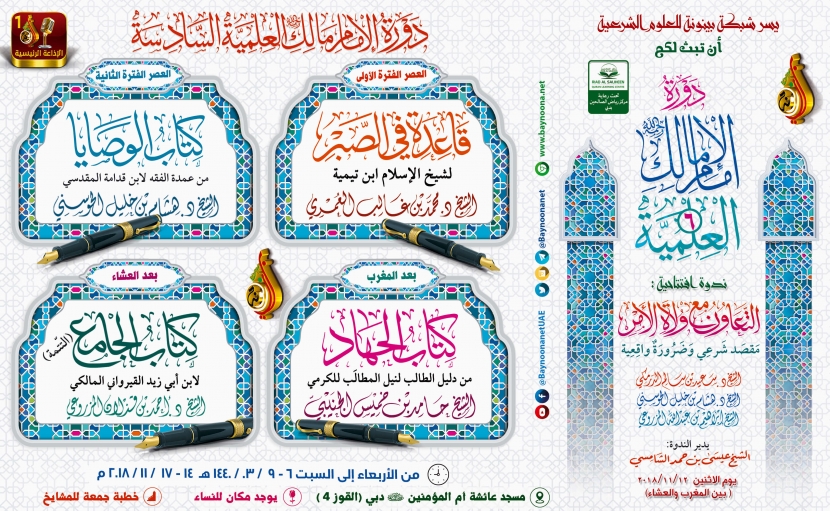 يسر شبكة بينونة للعلوم الشرعية
أن تبث لكم
دورة
الإمام مالك
رحمه الله
العلمية
٦
RIYAD AL SALIHEEN
تحت رعاية
مركز رياض الصالحين
بدبي
ندوة افتتاحية :
التعاون مع ولاة الأمر
مقصد شرعي وضرورة واقعية
الشيخ د. سعيد بن سالم الدرمكي
الشيخ د. هشام بن خليل الحوسني
الشيخ إبراهيم بن عبدالله المزروعي
يدير الندوة:
الشيخ عيسى بن حمد الشامسي
يوم الاثنين ٢٠١٨/١١/١٢
( بين المغرب والعشاء )
دورة الإمام مالك العلمية السادسة
1
الإذاعة الرئيسية
العصر الفترة الأولى
قاعدة في الصبر
لشيخ الإسلام ابن تيمية
الشيخ د. محمد بن غالب العمري
العصر الفترة الثانية
كتاب الوصايا
من عمدة الفقه لابن قدامة المقدسي
الشيخ د. هشام بن خليل الحوسني
بعد المغرب
كتاب الجهاد
من دليل الطالب لنيل المطالب للكرمي
الشيخ حامد بن خميس الجنيبي
بعد العشاء
كتاب الجامع
(التتمة)
لابن أبي زيد القيرواني المالكي
الشيخ د. أحمد بن قذلان المزروعي
www.baynoona.net
@Baynoonanet
@BaynoonanetUAE
من الأربعاء إلى السبت ٦ - ٩ / ٠٣ / ١٤٤٠ هـ ١٤ - ١٧ / ١١ / ٢٠١٨ م
مسجد عائشة أم المؤمنين دبي (القوز 4 )
يوجد مكان للنساء
خطبة جمعة للمشايخ